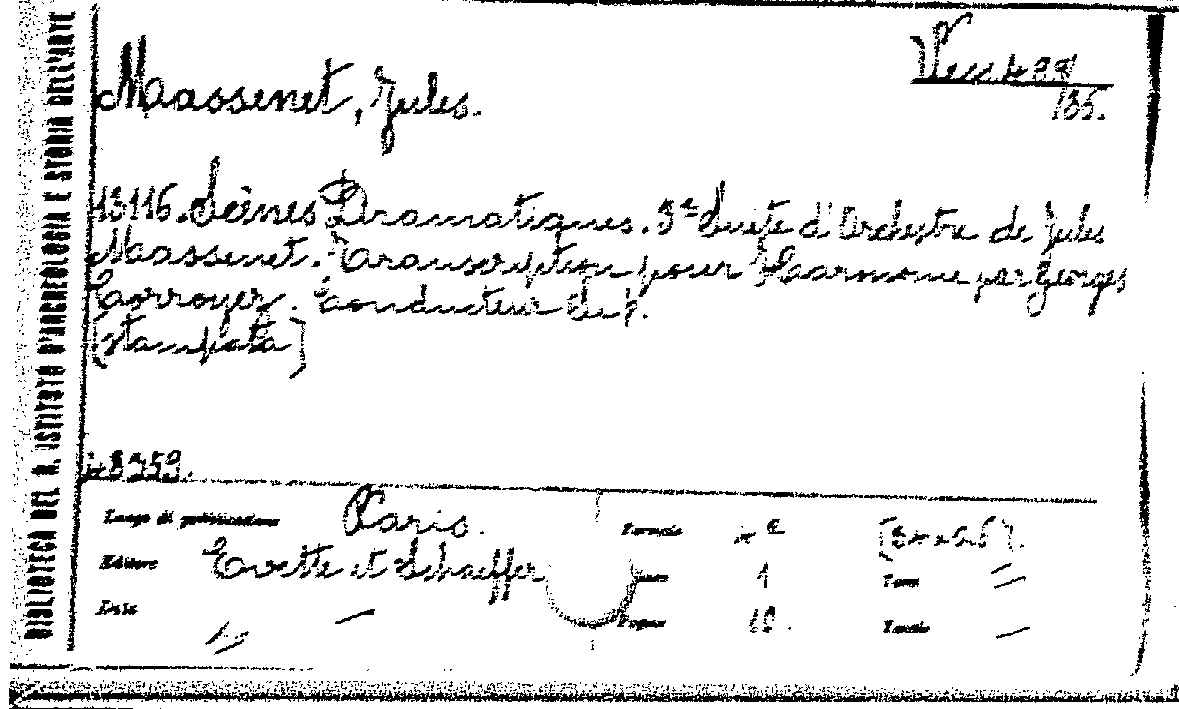 BIBLIOTECA DEL R. ISTITUTO D'ARCHEOLOGIA E STORIA DELL'ARTE
Massenet, Jules.
135.
Scènes Dramatiques. 3e Suite d'Orchestre de Jules
Massenet. Transcription pour Harmonie par Georges
Corroyez. Conducteur
[stampata]
48959.
Luogo di pubblicazione Paris.
Formato
Editore Evette et Schaeffer
1
Tomi =
Data —
Pagine 10.
Tavole —